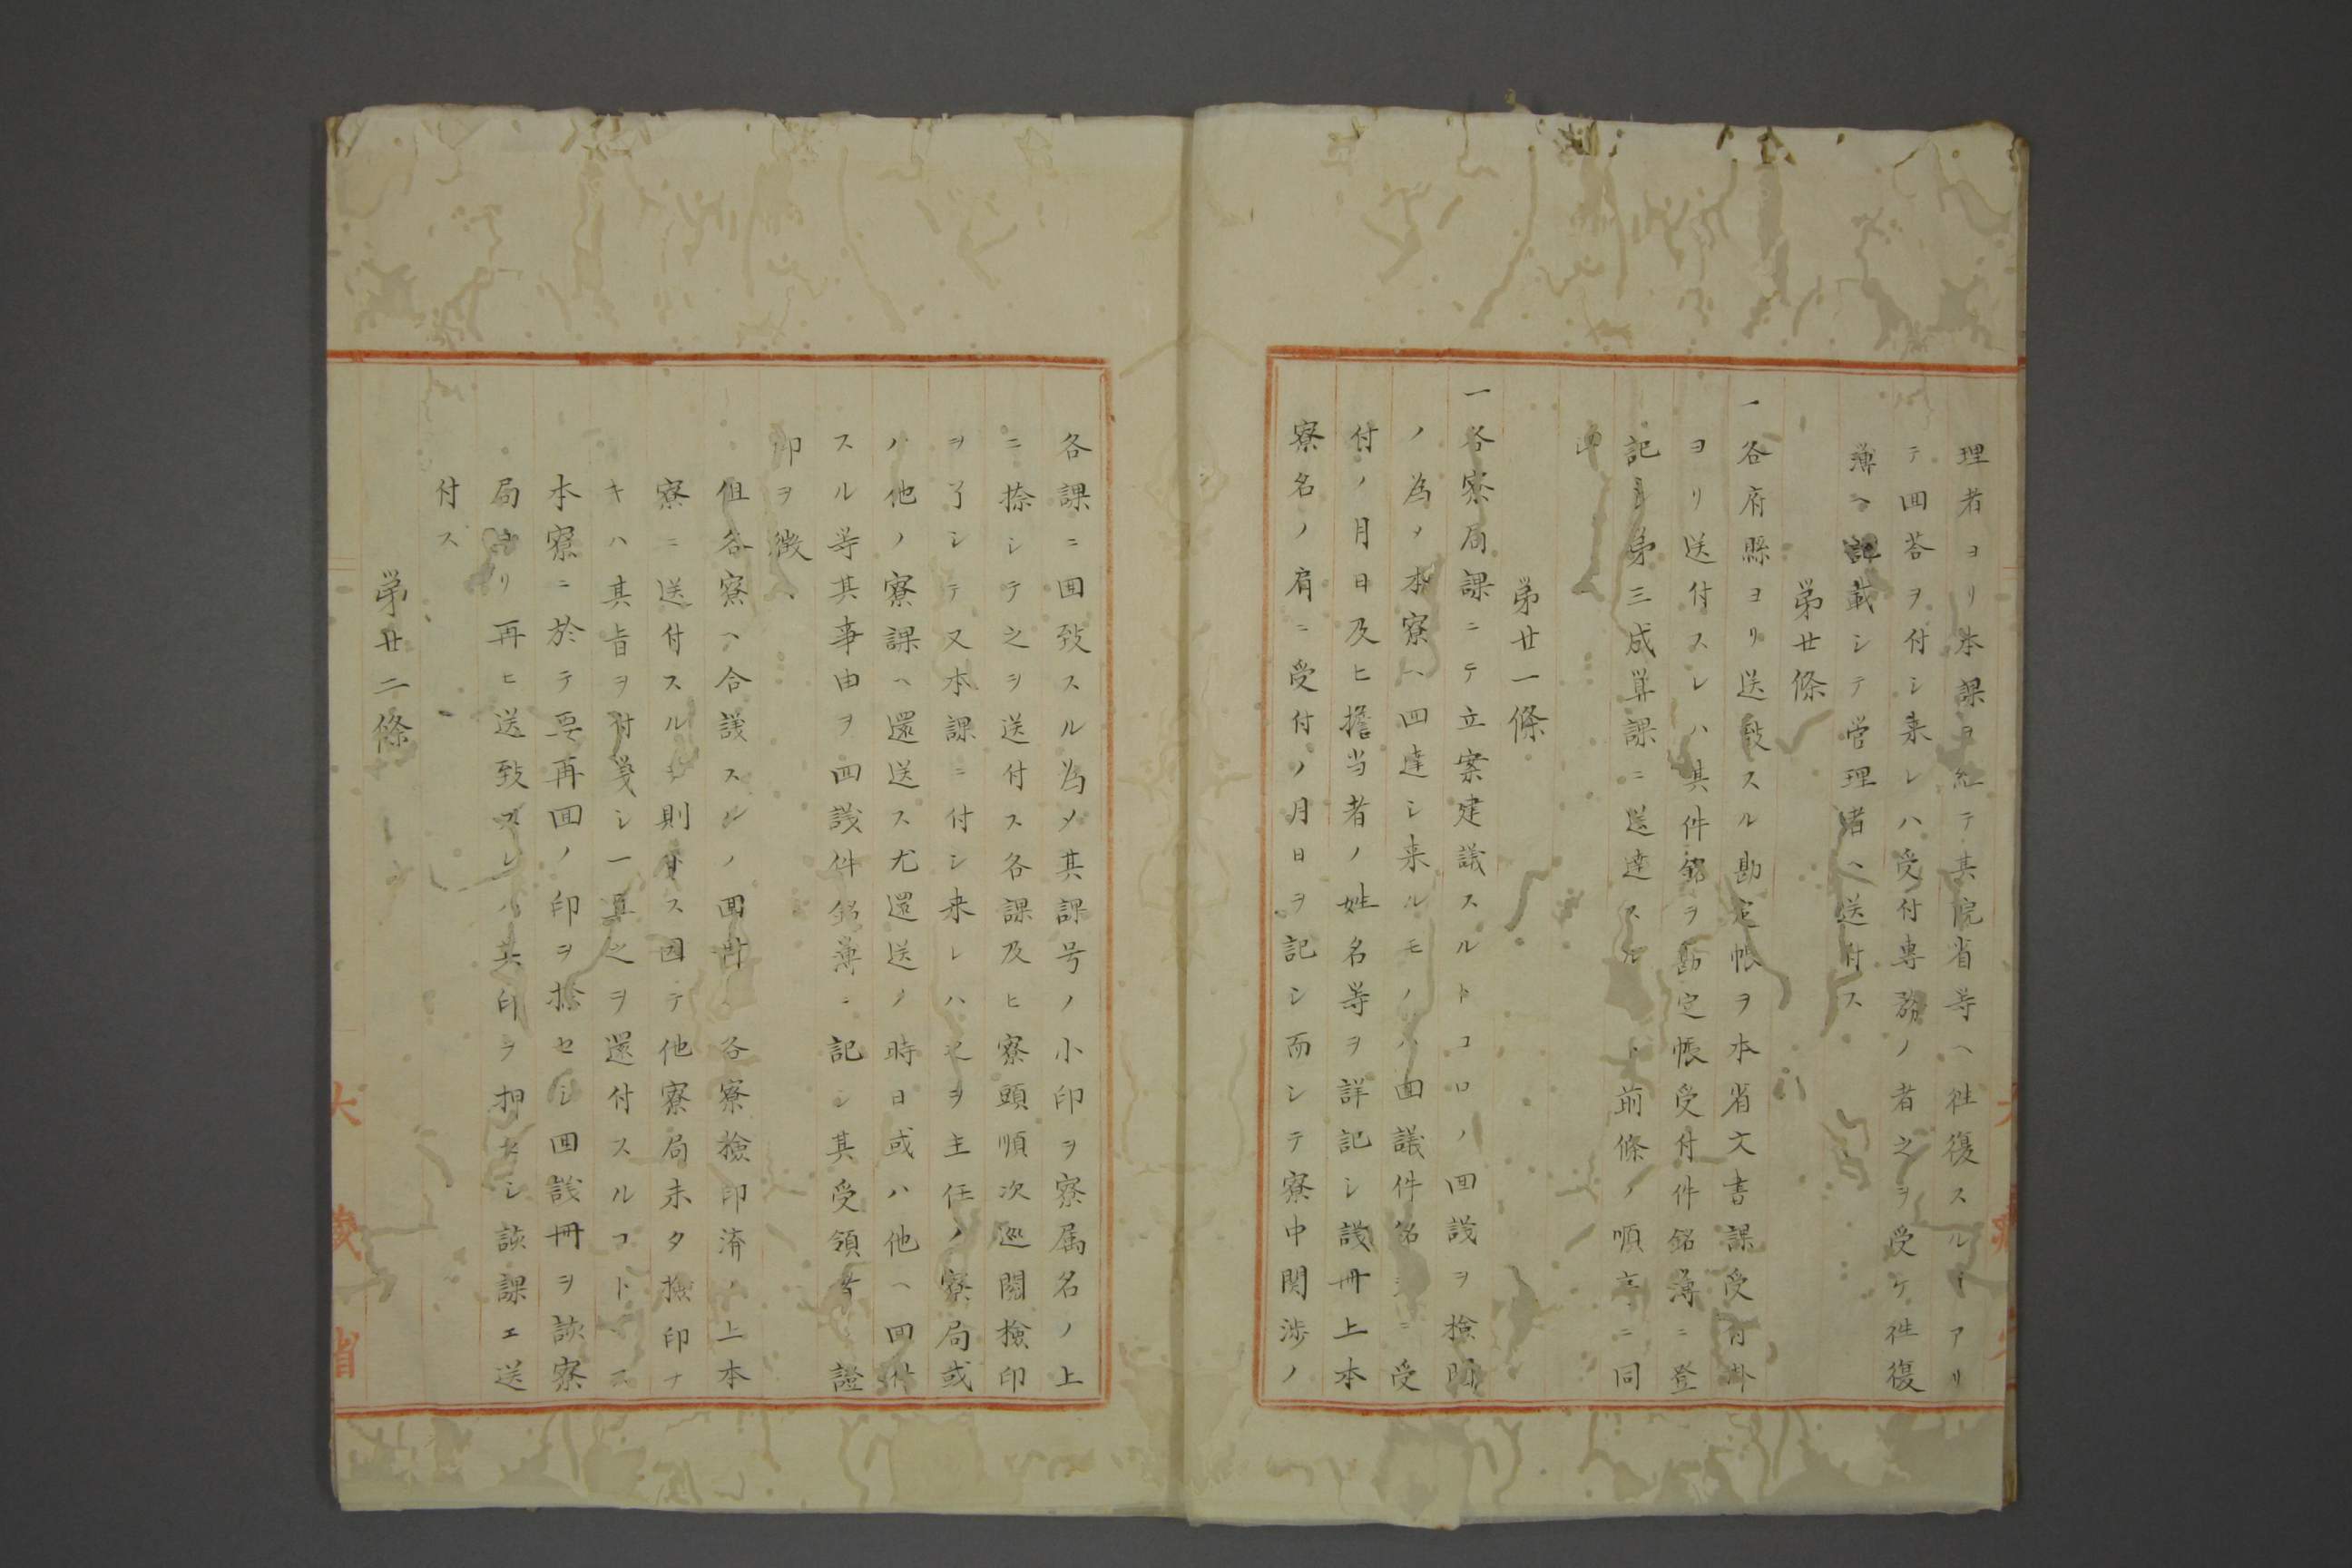 理者ヨリ本課ヲ経テ其院省等ヘ徃復スルニアリ
テ回荅ヲ付シ来レハ受付専務ノ者之ヲ受ケ徃復
簿ヘ記載シテ管理者ヘ送付ス
第廿條
一各府縣ヨリ送致スル勘定帳ヲ本省文書課受付掛
ヨリ送付スレハ其件銘ヲ勘定帳受付件銘簿ニ登
記シ第三成算課ニ送達スル前條ノ順序ニ同
シ
第廿一條
一各寮局課ニテ立案建議スルトコロノ回議ヲ検印
ノ為メ本寮ヘ回達シ来ルモノハ回議件名ニ受
付ノ月日及ヒ擔当者ノ姓名等ヲ詳記シ議冊上本
寮名ノ肩ニ受付ノ月日ヲ記シ而シテ寮中関渉ノ
各課ニ回致スル為メ其課号ノ小印ヲ寮属名ノ上
ニ捺シテ之ヲ送付ス各課及ヒ寮頭順次巡閲検印
ヲ了シテ又本課ニ付シ来レハ之ヲ主任ノ寮局或
ハ他ノ寮課ヘ還送ス尤還送ノ時日或ハ他ヘ回付
スル等其事由ヲ回議件銘簿ニ記シ其受領者ノ證
印ヲ徴ス
但各寮ヘ合議スルノ回冊ハ各寮撿印済ノ上本
寮ニ送付スルヲ則トス因テ他寮局未タ撿印ナ
キハ其旨ヲ付箋シ一旦之ヲ還付スルコトアリ
本寮ニ於テ要再回ノ印ヲ捺セシ回議冊ヲ該寮
局ヨリ再ヒ送致スレハ其印ヲ押セシ該課エ送
付ス
第廿二條
大藏省